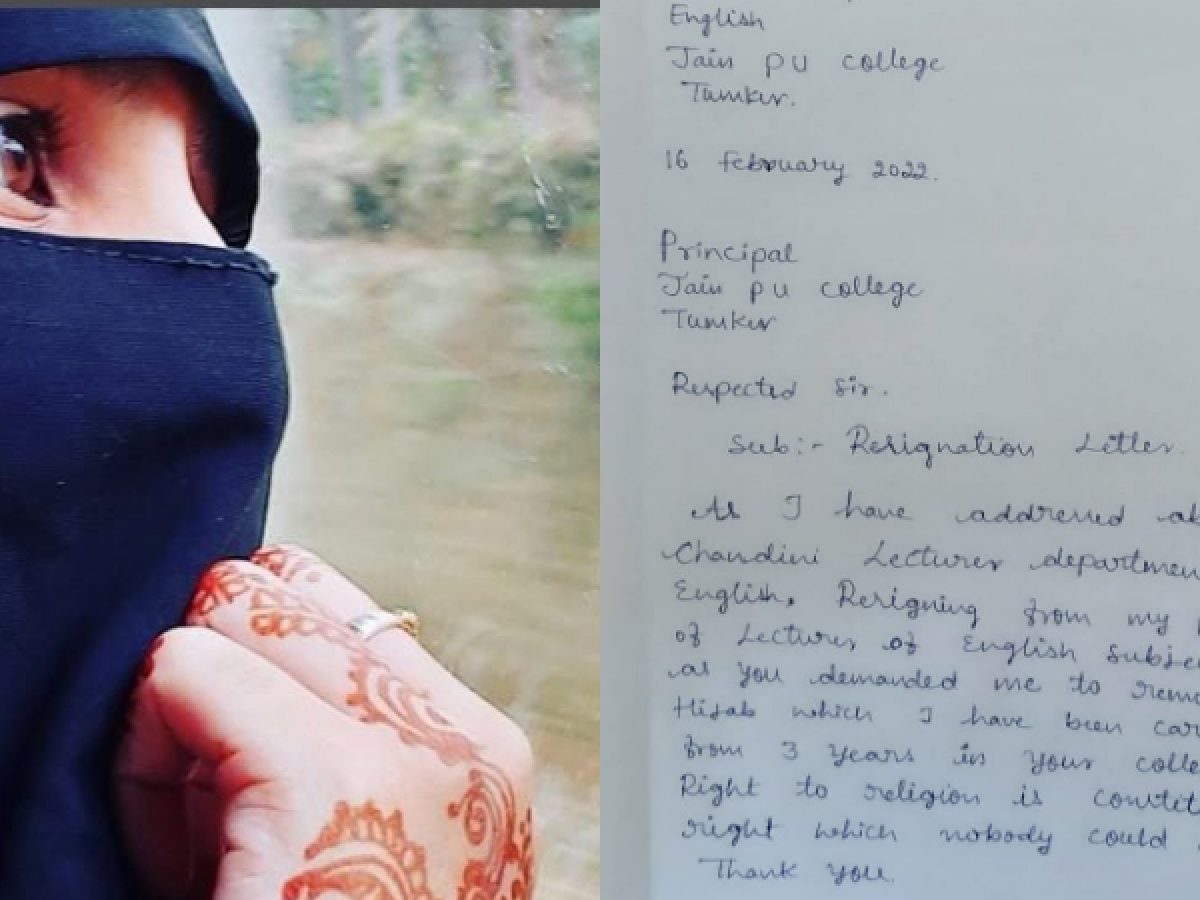 English
Jain PU college
Tumkur.
16 february 2022.
Principal
Jain PU college
Tumkur
Respected Sir.
Sub:- Resignation Letter.
As I have addressed ab
Chandini Lecturer departmen
English, Resigning from my
of Lecturer of English Subje
as you demanded me to remo
Hijab which I have been car
from 3 years in your colle
Right to religion is constit
right which nobody could
Thank you.